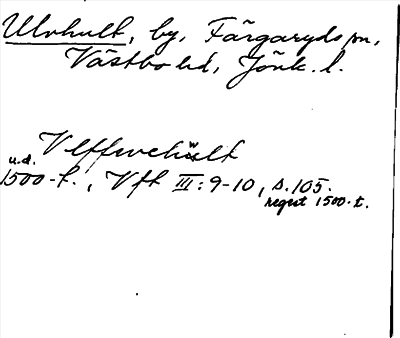 Ulvhult, by, Färgaryds sn,
Västbo hd, Jönk. l.
Vlffwehwlt
u.d.
1500-t., Vft III: 9-10, s. 105.
regest 1500-t.